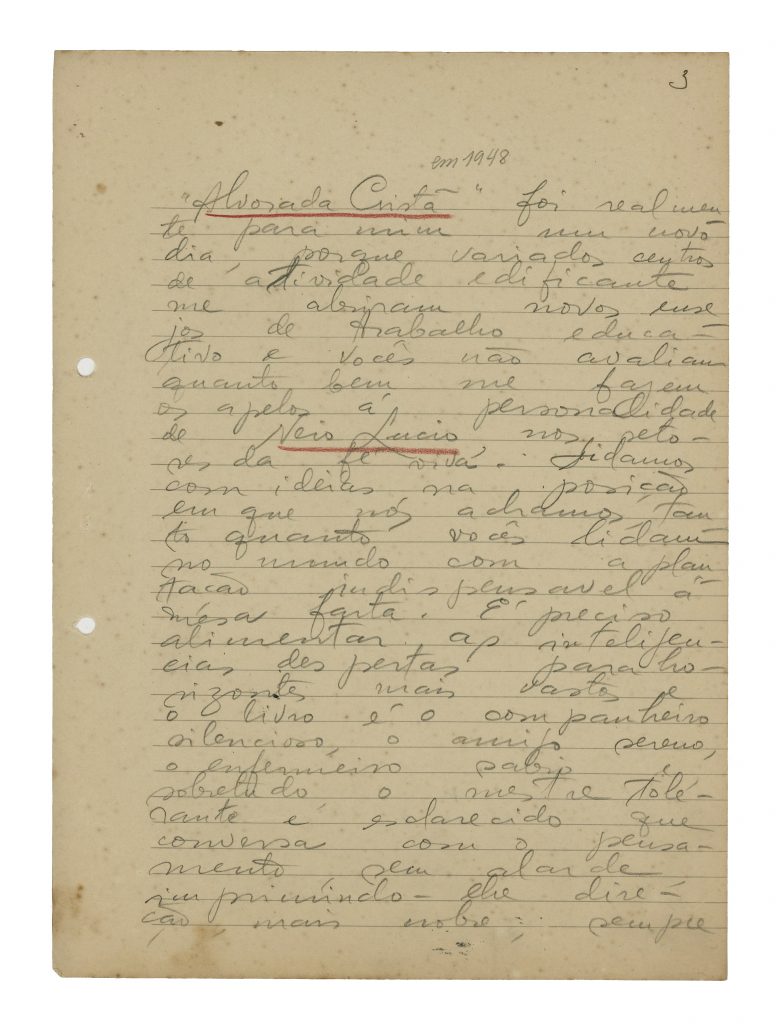 3
em 1948
"Alvorada Cristã" foi realmen
te para mim um novo
dia, porque variados centros
de atividade edificante
me abriram novos ense
jos de trabalho educa-
tivo e vocês não avaliam
quanto bem me fazem
os apelos á personalidade
de Neio Lucio, nos seto-
res da fé viva. Lidamos
com idéias na posição
em que nós achamos, tan
to quanto vocês lidam
no mundo com a plan
tação indispensavel á
mesa farta. É preciso
alimentar as inteligen-
cias despertas para ho-
rizontes mais vastos e
o livro é o companheiro
silencioso, o amigo sereno,
o enfermeiro sabio e
sobretudo o mestre tole-
rante e esclarecido que
conversa com o pensa-
mento, sem alarde
imprimindo-lhe dire-
ção mais nobre; sempre